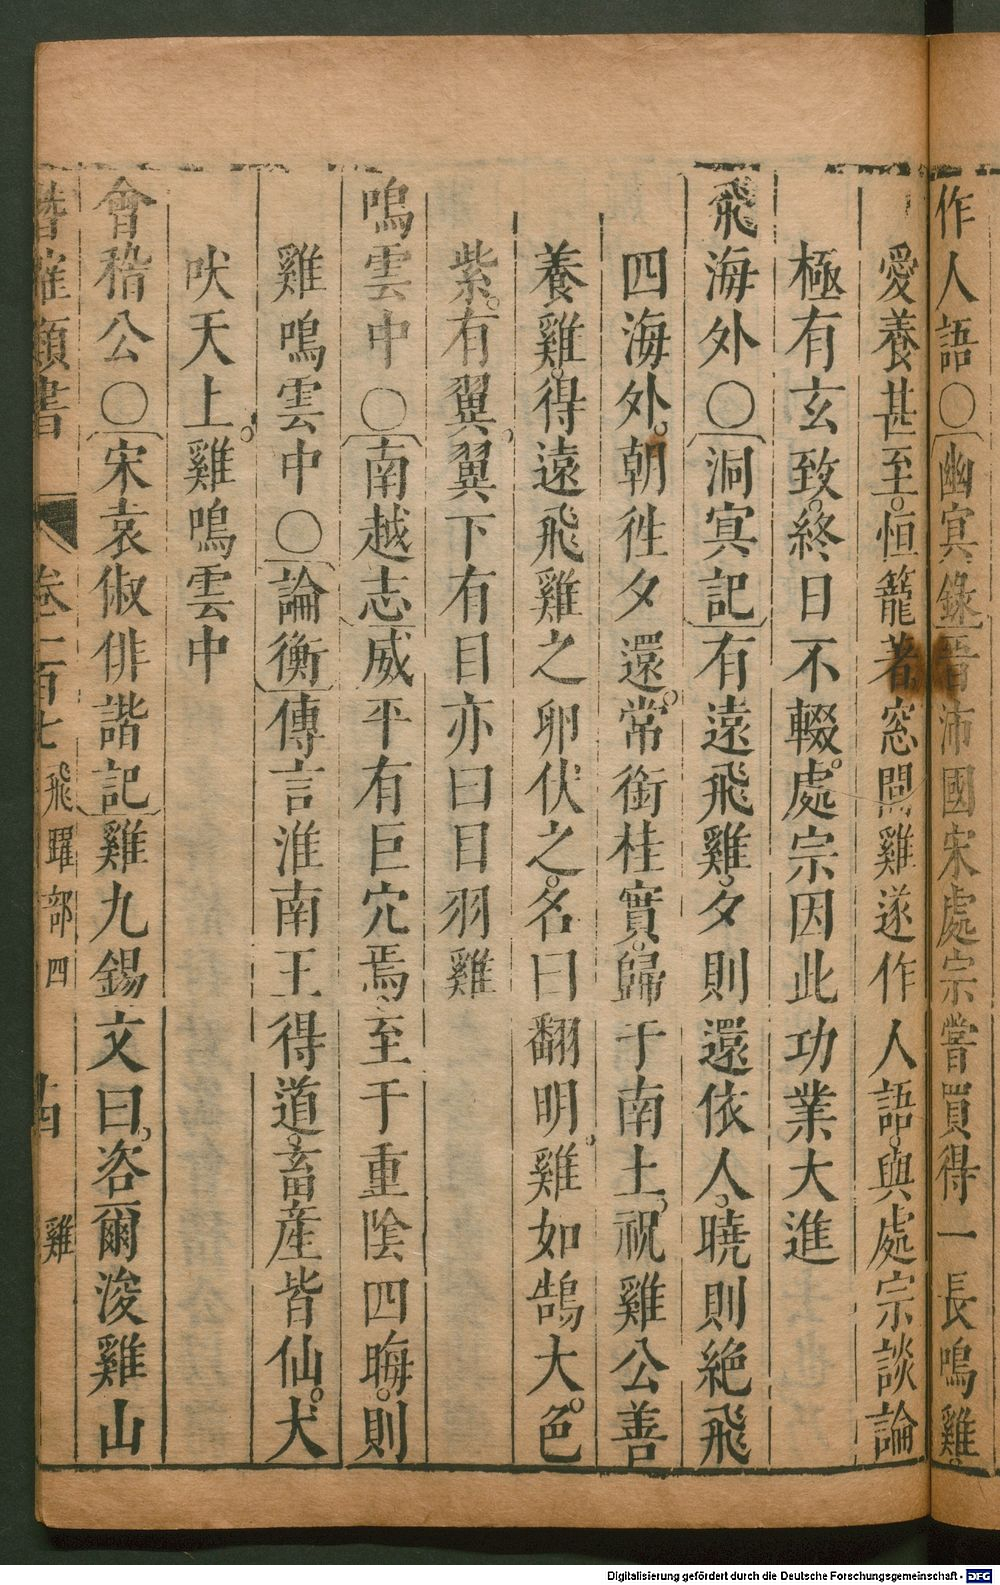 作人語○幽冥錄晉沛國宋處宗嘗買得一長鳴雞
愛養甚至恒籠著窓間雞遂作人語與處宗談論
極有玄致終日不輟處宗因此功業大進
飛海外○洞冥記有遠飛雞夕則還依人曉則絶飛
四海外朝徃夕還常銜桂實歸于南土祝雞公善
養雞得遠飛雞之卵伏之名曰翻明雞如鵠大色
紫有翼翼下有目亦曰目羽雞
鳴雲中○南越志威平有巨穴焉至于重陰四晦則
雞鳴雲中○論衡傳言淮南王得道畜産皆仙犬
吠天上雞鳴雲中
會稽公○宋袁俶俳諧記雞九錫文曰咨爾浚雞山
類書 卷一百七 飛躍部四 雞
Digitalisierung gefördert durch die Deutsche Forschungsgemeinschaft - DFG